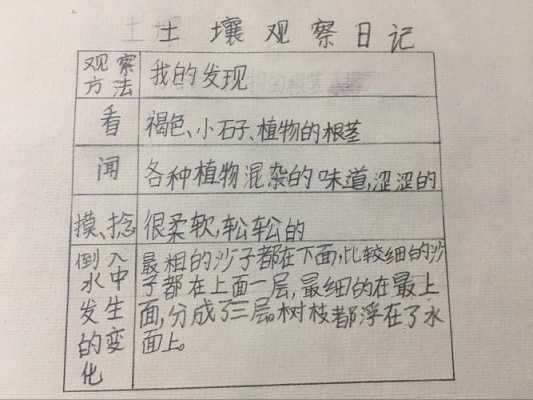 土壤观察日记
观察方法 我的发现
看 褐色、小石子、植物的根茎
闻 各种植物混杂的味道,涩涩的
摸、捻 很柔软,松松的
倒入水中发生的变化 最粗的沙子都在下面,比较细的沙
子都在上面一层,最细的在最上
面,分成了三层。树枝都浮在了水
面上。